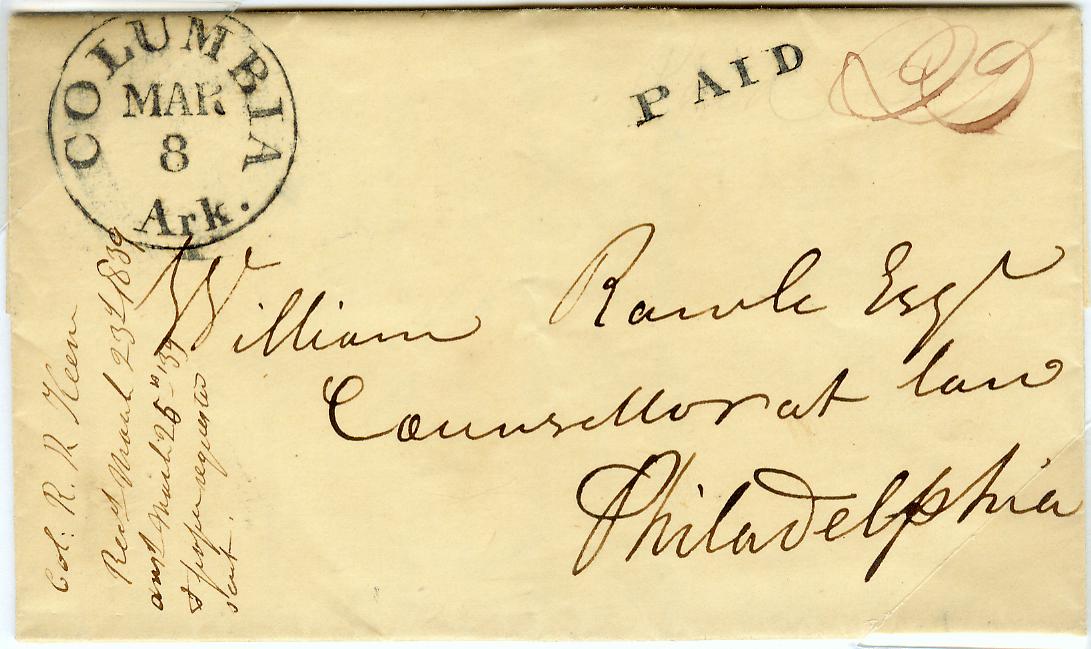 COLUMBIA
MAR
8
Ark.
PAID
William Rawle Esqr
Counsellor at law
Philadelphia
Col: R. R Keen
Recd March 23d 1839
ansd March 25th '39
& paper requested
sent.